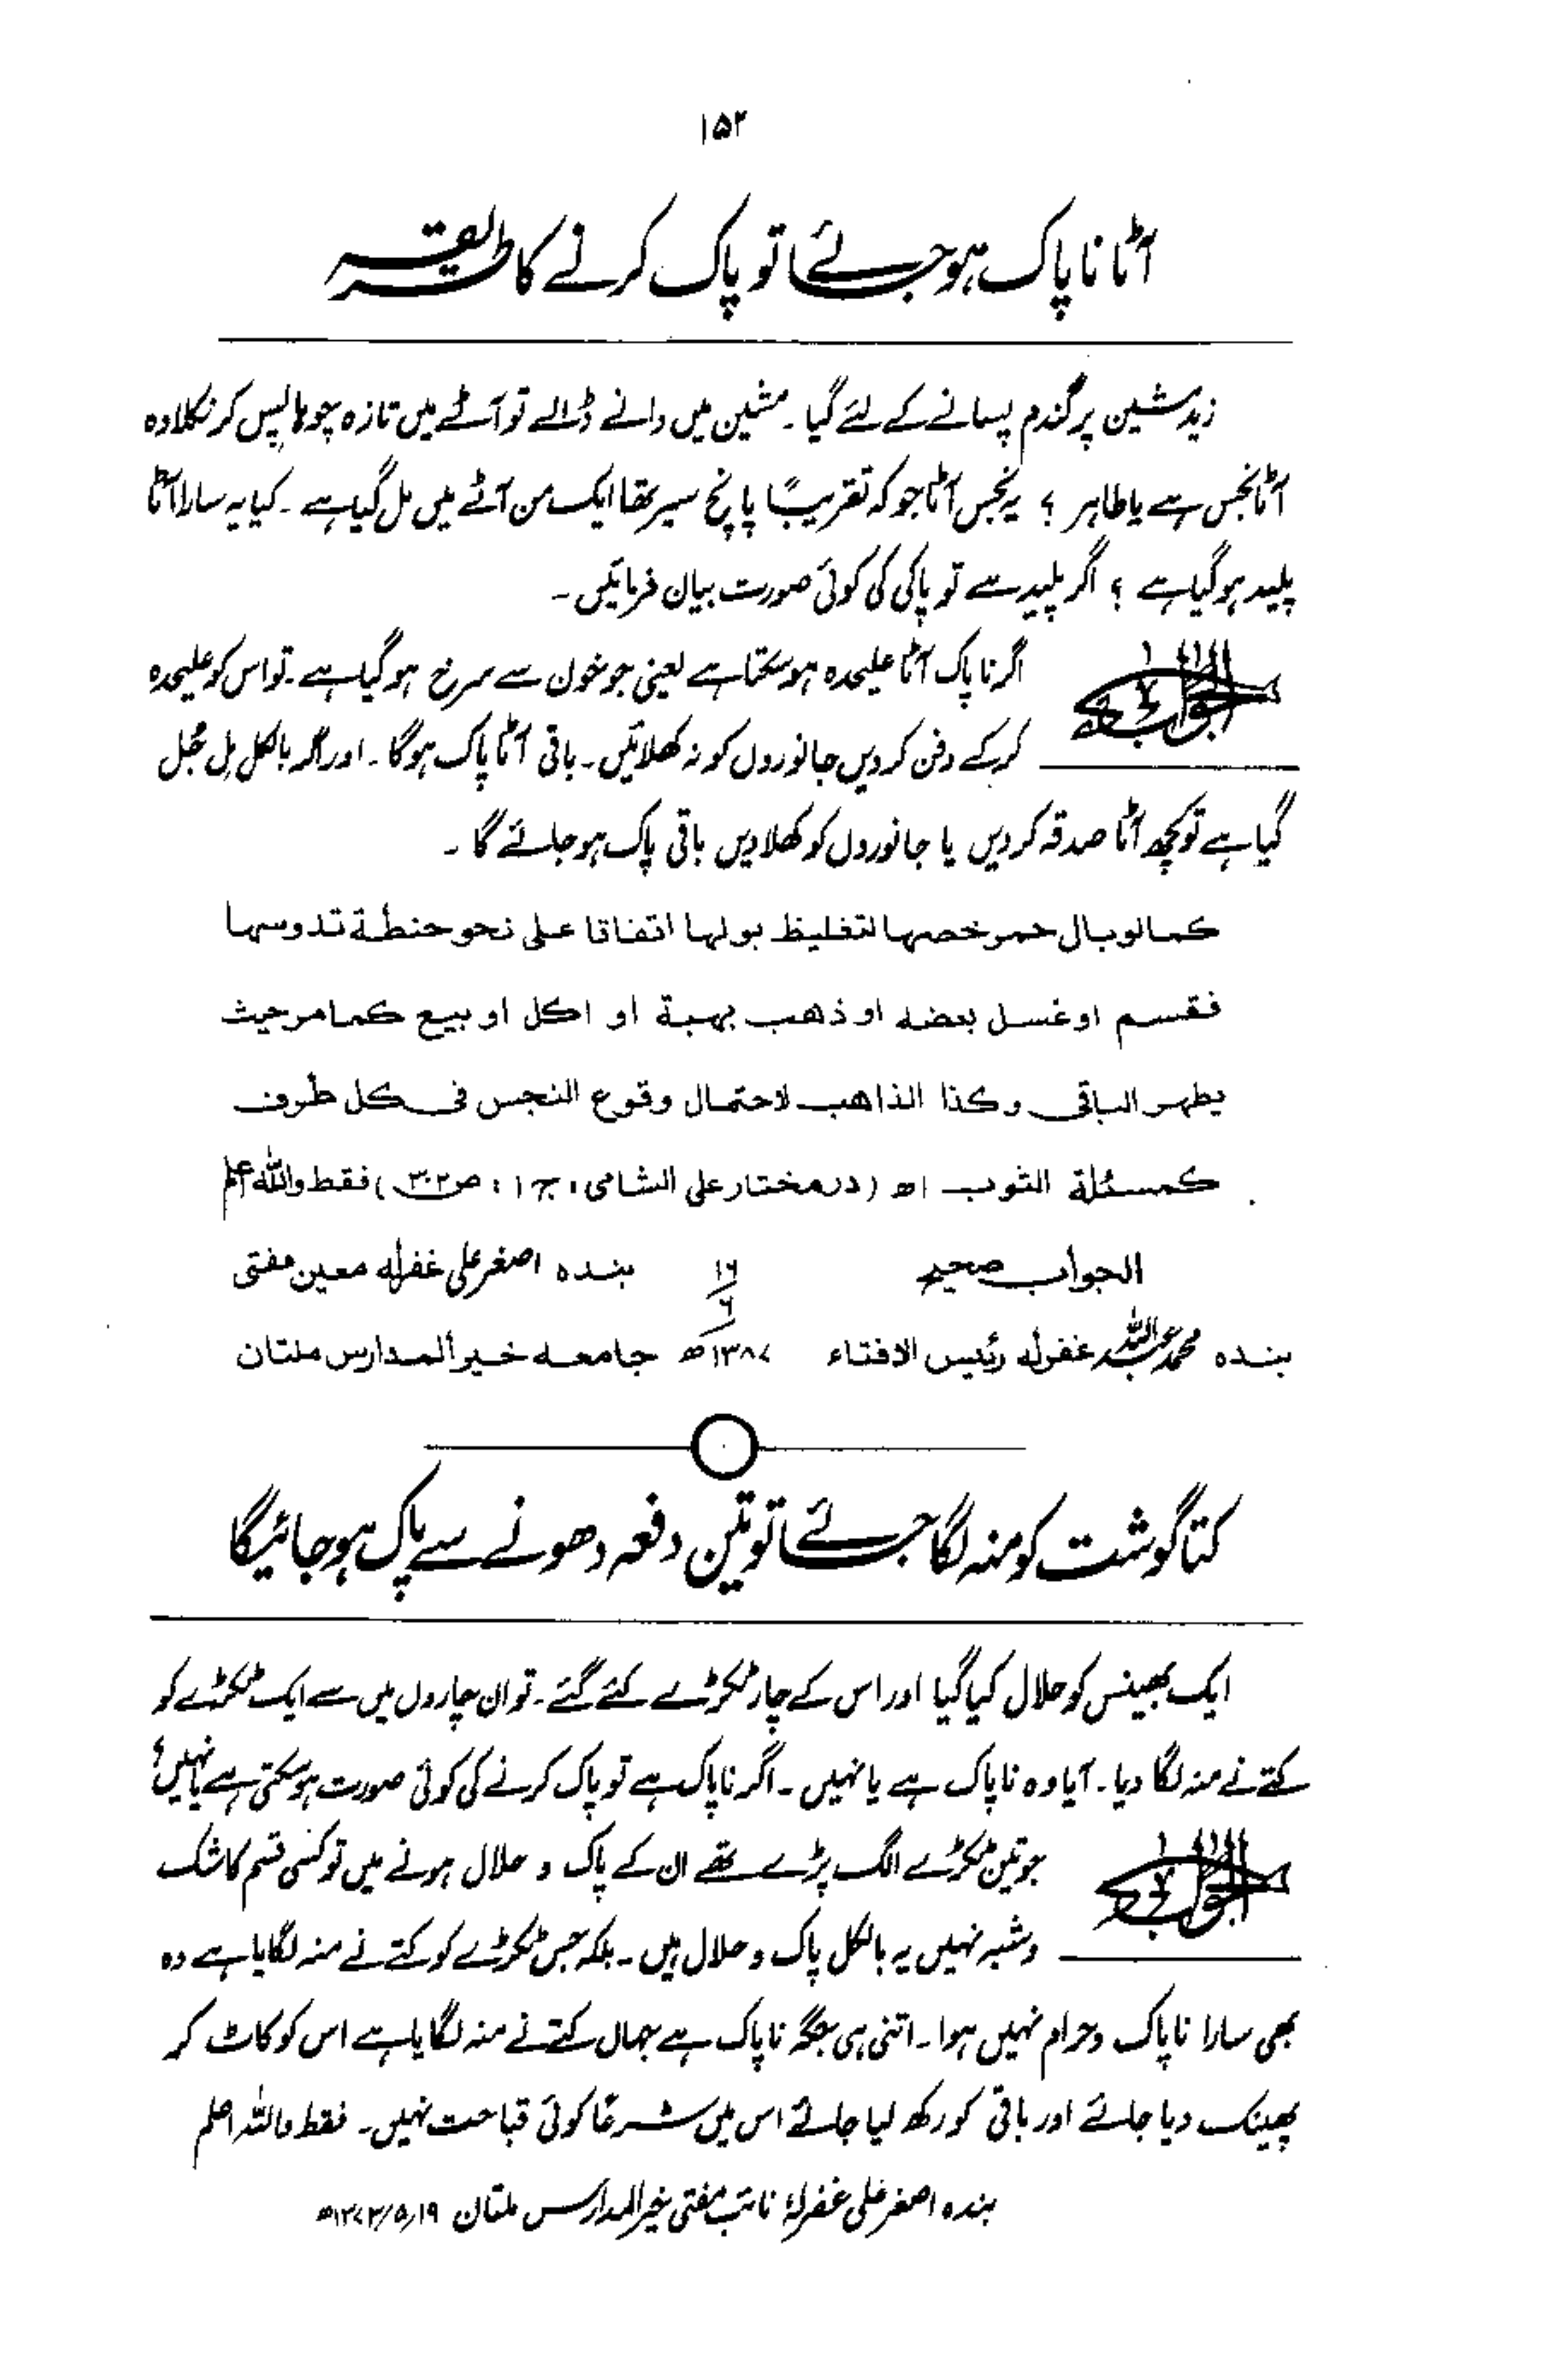 ۱۵۲
آٹا ناپاک ہو جائے تو پاک کرنے کا طریقہ
زید مشین پر گندم پسانے کے لئے گیا۔ مشین میں دانے ڈالے تو آٹے میں تازہ چوہا پس کر نکلا وہ
آٹا نجس ہے یا طاہر ؟ یہ نجس آٹا جو کہ تقریباً پانچ سیر تھا ایک من آٹے میں مل گیا ہے ۔ کیا یہ سارا آٹا
پلید ہو گیا ہے ؟ اگر پلید ہے تو پاکی کی کوئی صورت بیان فرمائیں ۔
الجواب
اگر ناپاک آٹا علیحدہ ہو سکتا ہے یعنی جو خون سے سرخ ہو گیا ہے ۔ تو اس کو علیحدہ
کر کے دفن کر دیں جانوروں کو نہ کھلائیں ۔ باقی آٹا پاک ہوگا ۔ اور اگر بالکل مل جل
گیا ہے تو کچھ آٹا صدقہ کر دیں یا جانوروں کو کھلا دیں باقی پاک ہو جائے گا ۔
كما لو بال حمر خصها لتغليظ بولها اتفاقا على نحو حنطة تدوسها
فقسم او غسل بعضه او ذهب بهبة او اكل او بيع كما مر حيث
يطهر الباقى وكذا الذاهب لاحتمال وقوع النجس فى كل طرف
كمسئلة الثوب اھ (درمختار علی الشامی ، ج ۱ ، ص۳۰۲) فقط واللہ اعلم
الجواب صحیح ۱۶/۶ بندہ اصغر علی غفرلہ معین مفتی
بندہ محمد عبداللہ غفرلہ رئیس الافتاء ۱۳۸۷ھ جامعہ خیر المدارس ملتان
کتا گوشت کو منہ لگا جائے تو تین دفعہ دھونے سے پاک ہو جائیگا
ایک بھینس کو حلال کیا گیا اور اس کے چار ٹکڑے کئے گئے ۔ تو ان چاروں میں سے ایک ٹکڑے کو
کتے نے منہ لگا دیا ۔ آیا وہ ناپاک ہے یا نہیں ۔ اگر ناپاک ہے تو پاک کرنے کی کوئی صورت ہو سکتی ہے یا نہیں؟
الجواب
جو تین ٹکڑے الگ پڑے تھے ان کے پاک و حلال ہونے میں تو کسی قسم کا شک
و شبہ نہیں یہ بالکل پاک و حلال ہیں ۔ بلکہ جس ٹکڑے کو کتے نے منہ لگایا ہے وہ
بھی سارا ناپاک و حرام نہیں ہوا ۔ اتنی ہی جگہ ناپاک ہے جہاں کتے نے منہ لگایا ہے اس کو کاٹ کر
پھینک دیا جائے اور باقی کو رکھ لیا جائے اس میں شرعاً کوئی قباحت نہیں ۔ فقط واللہ اعلم
بندہ اصغر علی غفرلہٗ نائب مفتی خیر المدارس ملتان ۱۹/۵/۱۳۷۳ھ